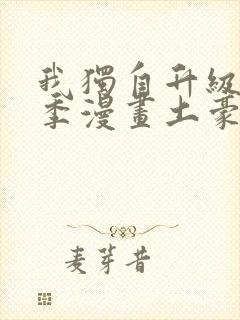 我獨自升級
季漫畫土豪
麦芽昔